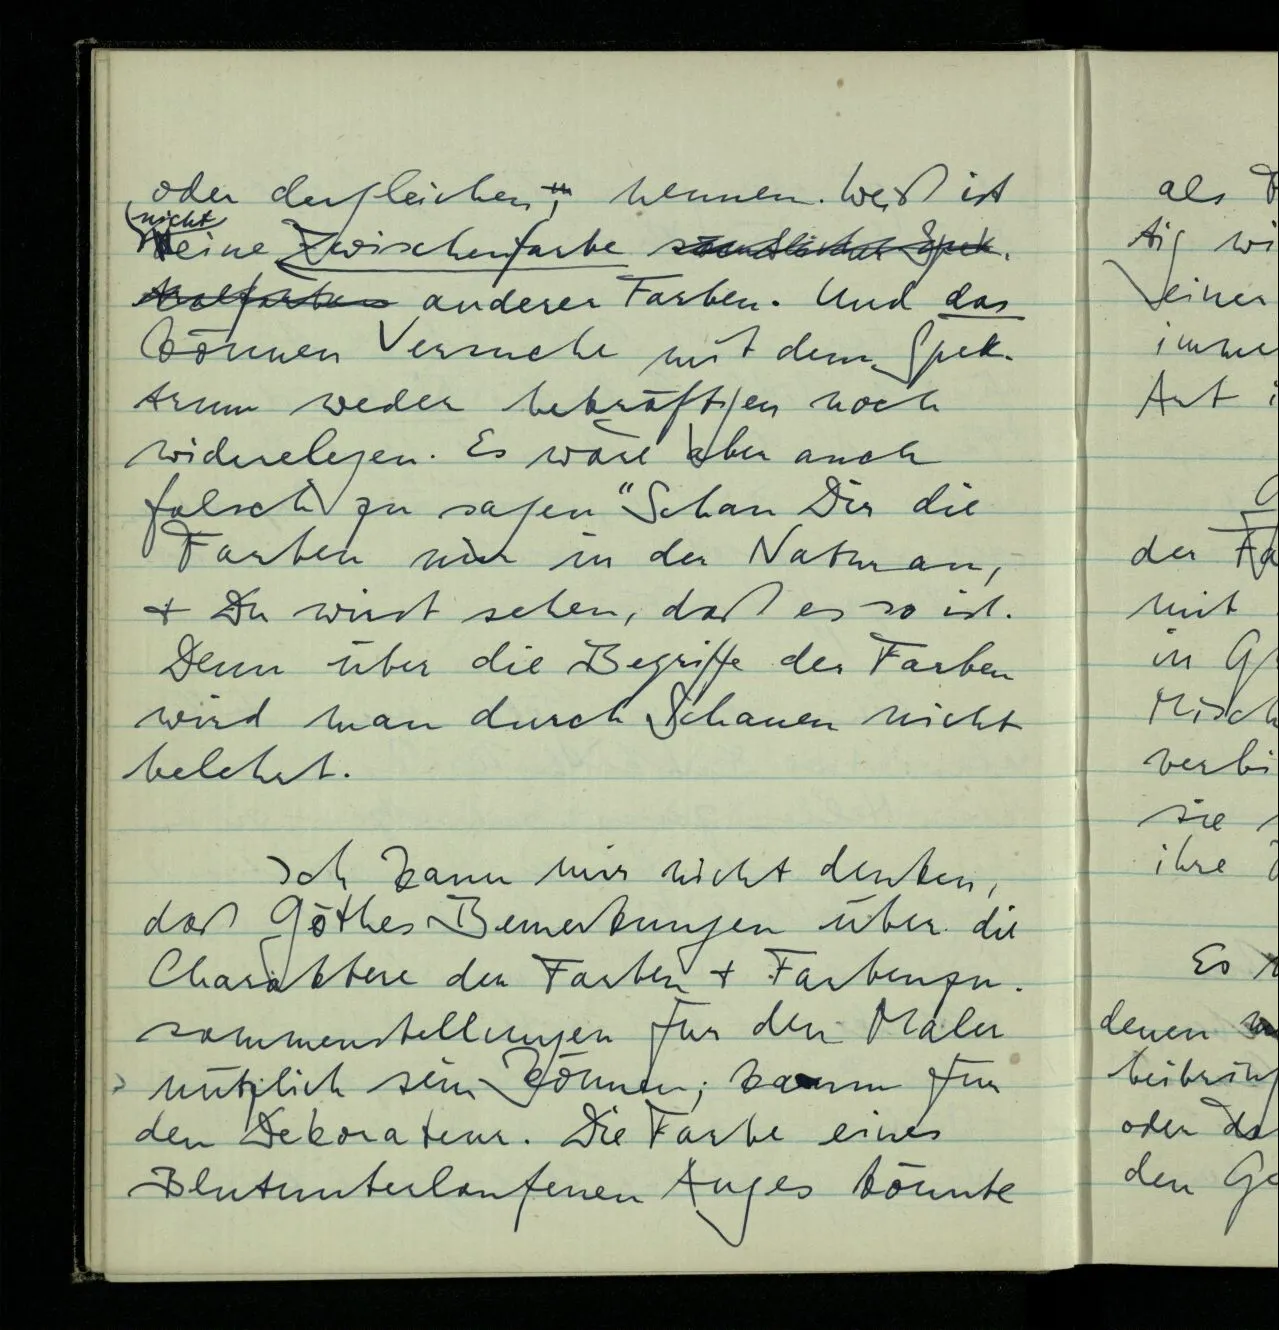 oder dergleichen, nennen. Weiß ist
nicht
eine Zwischenfarbe sämtlicher Spek-
tralfarben anderer Farben. Und das
können Versuche mit dem Spek-
trum weder bekräftigen noch
widerelegen. Es wäre aber auch
falsch zu sagen "Schau Dir die
Farben nur in der Natur an,
+ Du wirst sehen, daß es so ist.
Denn über die Begriffe der Farben
wird man durch Schauen nicht
belehrt.
Ich kann mir nicht denken,
daß Göthes Bemerkungen über die
Charaktere der Farben + Farbenzu-
sammenstellungen für den Maler
nützlich sein können; kaum für
den Dekorateur. Die Farbe eines
Blutunterlaufenen Auges könnte
als
tig wi
einer
imme
Art i
der Fa
mit
in G
Misch
verbi
sie
ihre
Es
denen
beibring
oder
den Ge